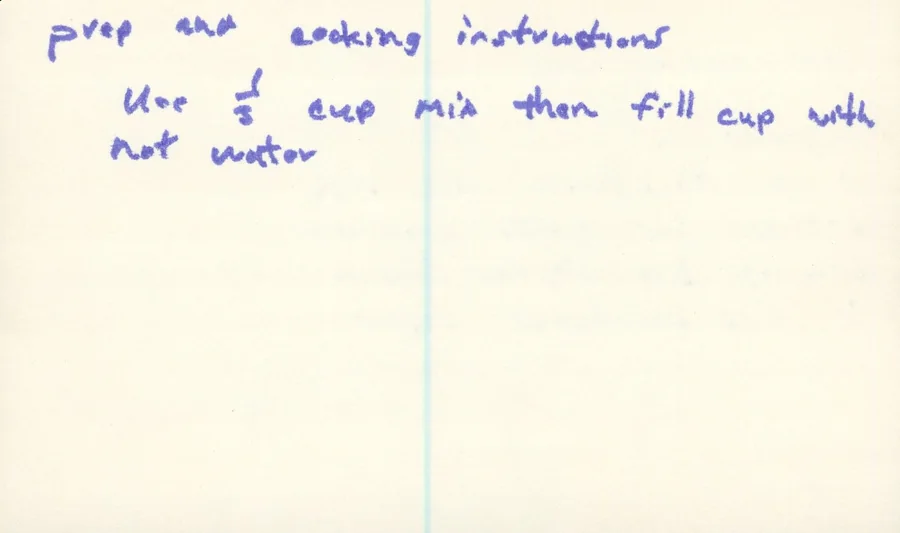 prep and cooking instructions
Use 1/3 cup mix then fill cup with
hot water